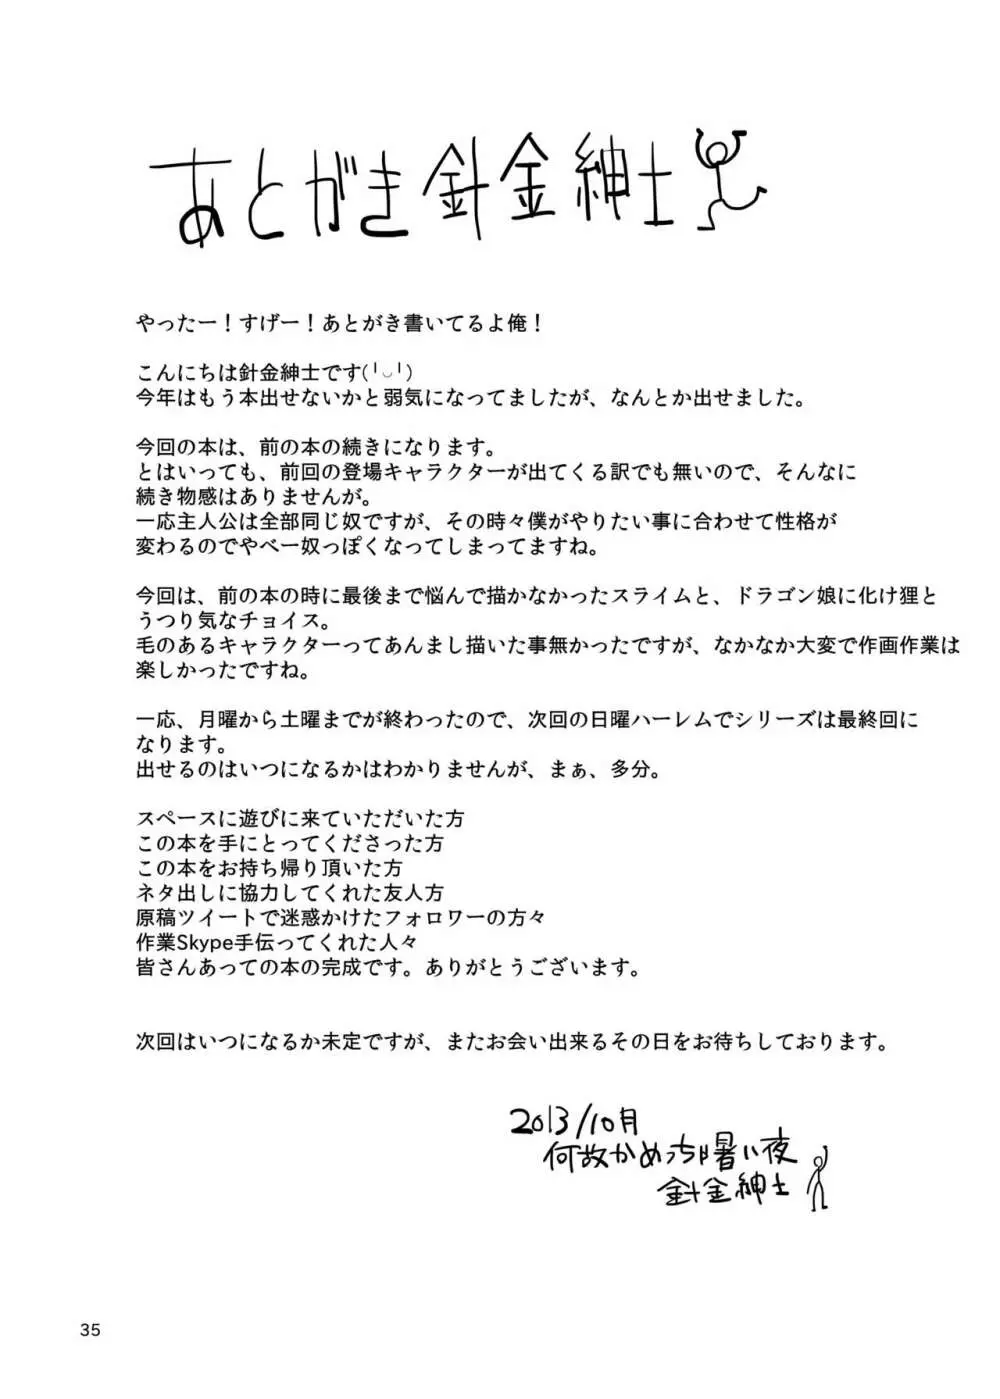 あとがき針金紳士
やったー！すげー！あとがき書いてるよ俺！
こんにちは針金紳士です(╹◡╹)
今年はもう本出せないかと弱気になってましたが、なんとか出せました。
今回の本は、前の本の続きになります。
とはいっても、前回の登場キャラクターが出てくる訳でも無いので、そんなに
続き物感はありませんが。
一応主人公は全部同じ奴ですが、その時々僕がやりたい事に合わせて性格が
変わるのでやべー奴っぽくなってしまってますね。
今回は、前の本の時に最後まで悩んで描かなかったスライムと、ドラゴン娘に化け狸と
うつり気なチョイス。
毛のあるキャラクターってあんまし描いた事無かったですが、なかなか大変で作画作業は
楽しかったですね。
一応、月曜から土曜までが終わったので、次回の日曜ハーレムでシリーズは最終回に
なります。
出せるのはいつになるかはわかりませんが、まぁ、多分。
スペースに遊びに来ていただいた方
この本を手にとってくださった方
この本をお持ち帰り頂いた方
ネタ出しに協力してくれた友人方
原稿ツイートで迷惑かけたフォロワーの方々
作業Skype手伝ってくれた人々
皆さんあっての本の完成です。ありがとうございます。
次回はいつになるか未定ですが、またお会い出来るその日をお待ちしております。
2013/10月
何故かめっちゃ暑い夜
針金紳士
35